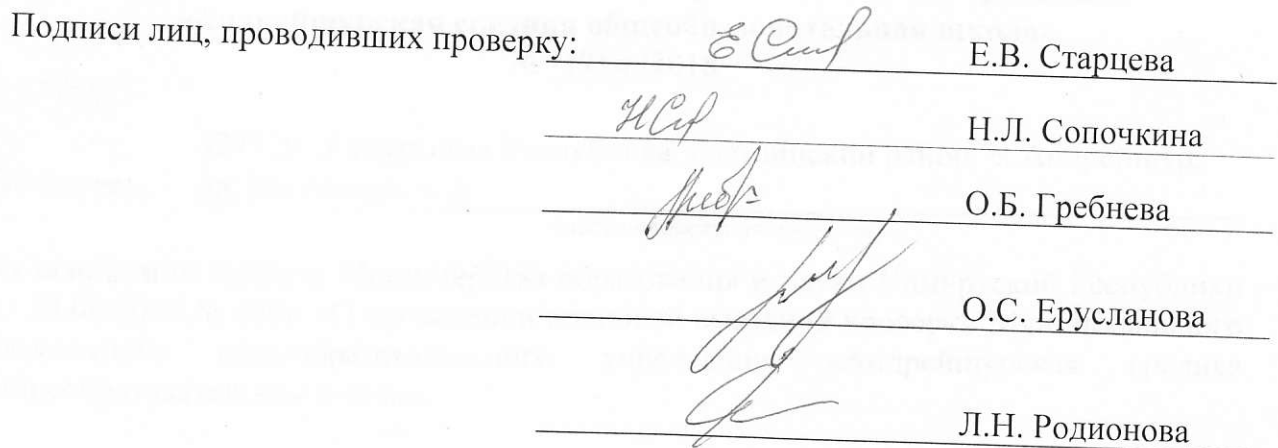 Подписи лиц, проводивших проверку: Е.В. Старцева
Н.Л. Сопочкина
О.Б. Гребнева
О.С. Ерусланова
Л.Н. Родионова